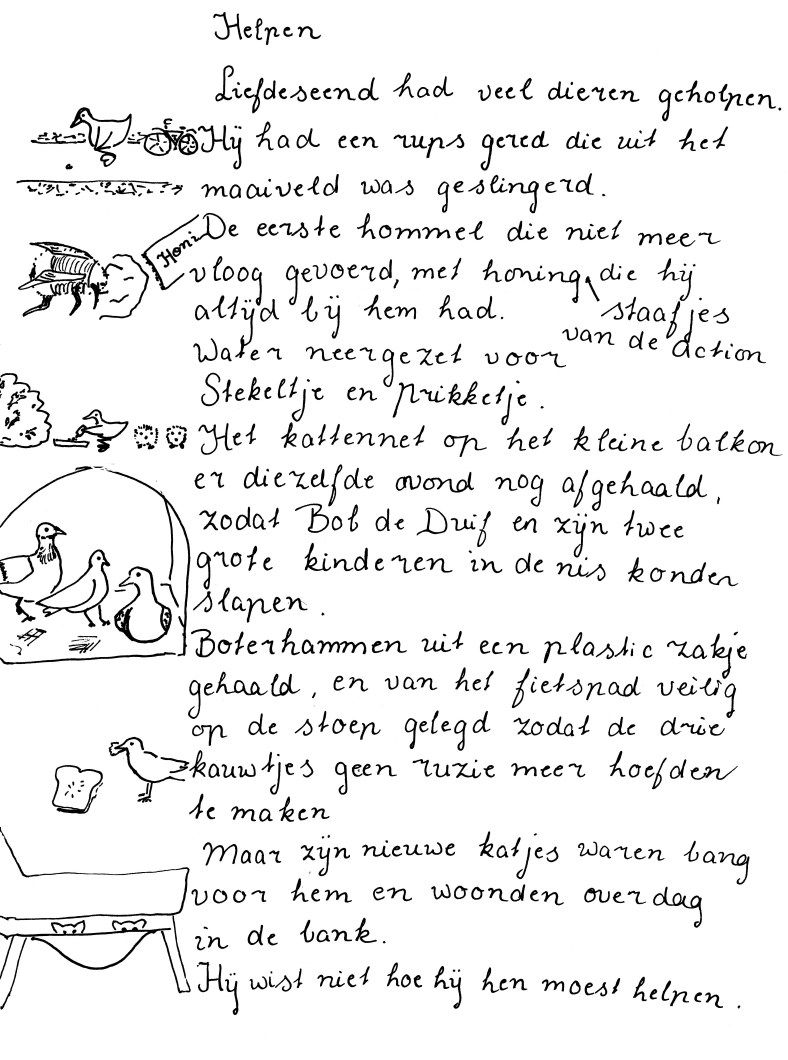 Helpen
Liefdeseend had veel dieren geholpen.
Hij had een rups gered die uit het
maaiveld was geslingerd.
Honi
De eerste hommel die niet meer
vloog gevoerd, met honing, die hij
altijd bij hem had. staafjes
van de action
Water neergezet voor
Stekeltje en Prikketje.
Het kattennet op het kleine balkon
er diezelfde avond nog afgehaald,
zodat Bob de Duif en zijn twee
grote kinderen in de nis konden
slapen.
Boterhammen uit een plastic zakje
gehaald, en van het fietspad veilig
op de stoep gelegd zodat de drie
kauwtjes geen ruzie meer hoefden
te maken
Maar zijn nieuwe katjes waren bang
voor hem en woonden overdag
in de bank.
Hij wist niet hoe hij hen moest helpen.